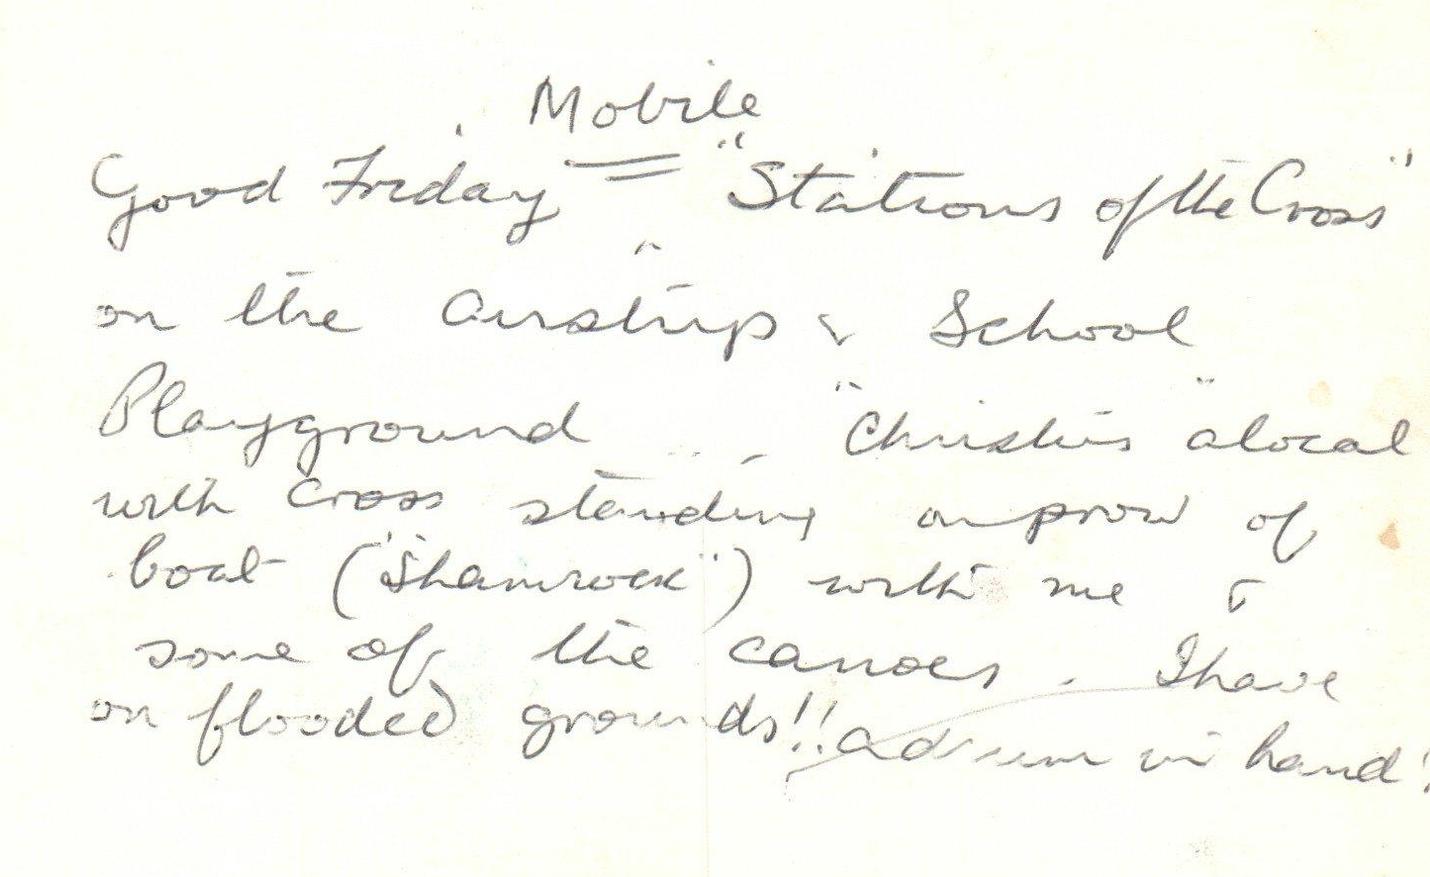 Mobile
Good Friday "Stations of the Cross"
on the airstrip & School
Playground "Christus" a local
with Cross standing on prow of
boat ("Shamrock") with me &
some of the canoes. I have
on flooded grounds!! a drum in hand!